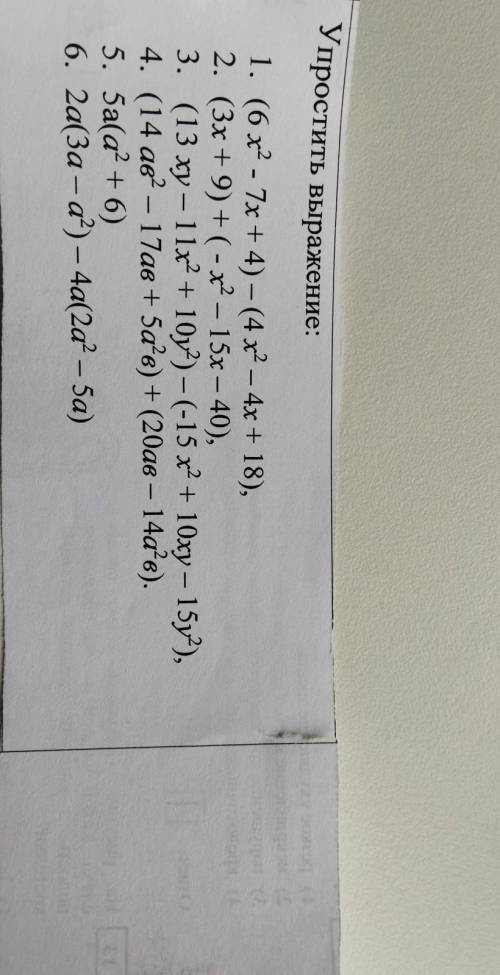 Упростить выражение:
1. (6 x² - 7x + 4) – (4 x² – 4x + 18),
2. (3x + 9) + ( - x² – 15x – 40),
3. (13 xy – 11x² + 10y²) – (-15 x² + 10xy – 15y²),
4. (14 ав² – 17ав + 5а²в) + (20ав – 14а²в).
5. 5а(а² + 6)
6. 2а(3а – а²) – 4а(2а² – 5а)